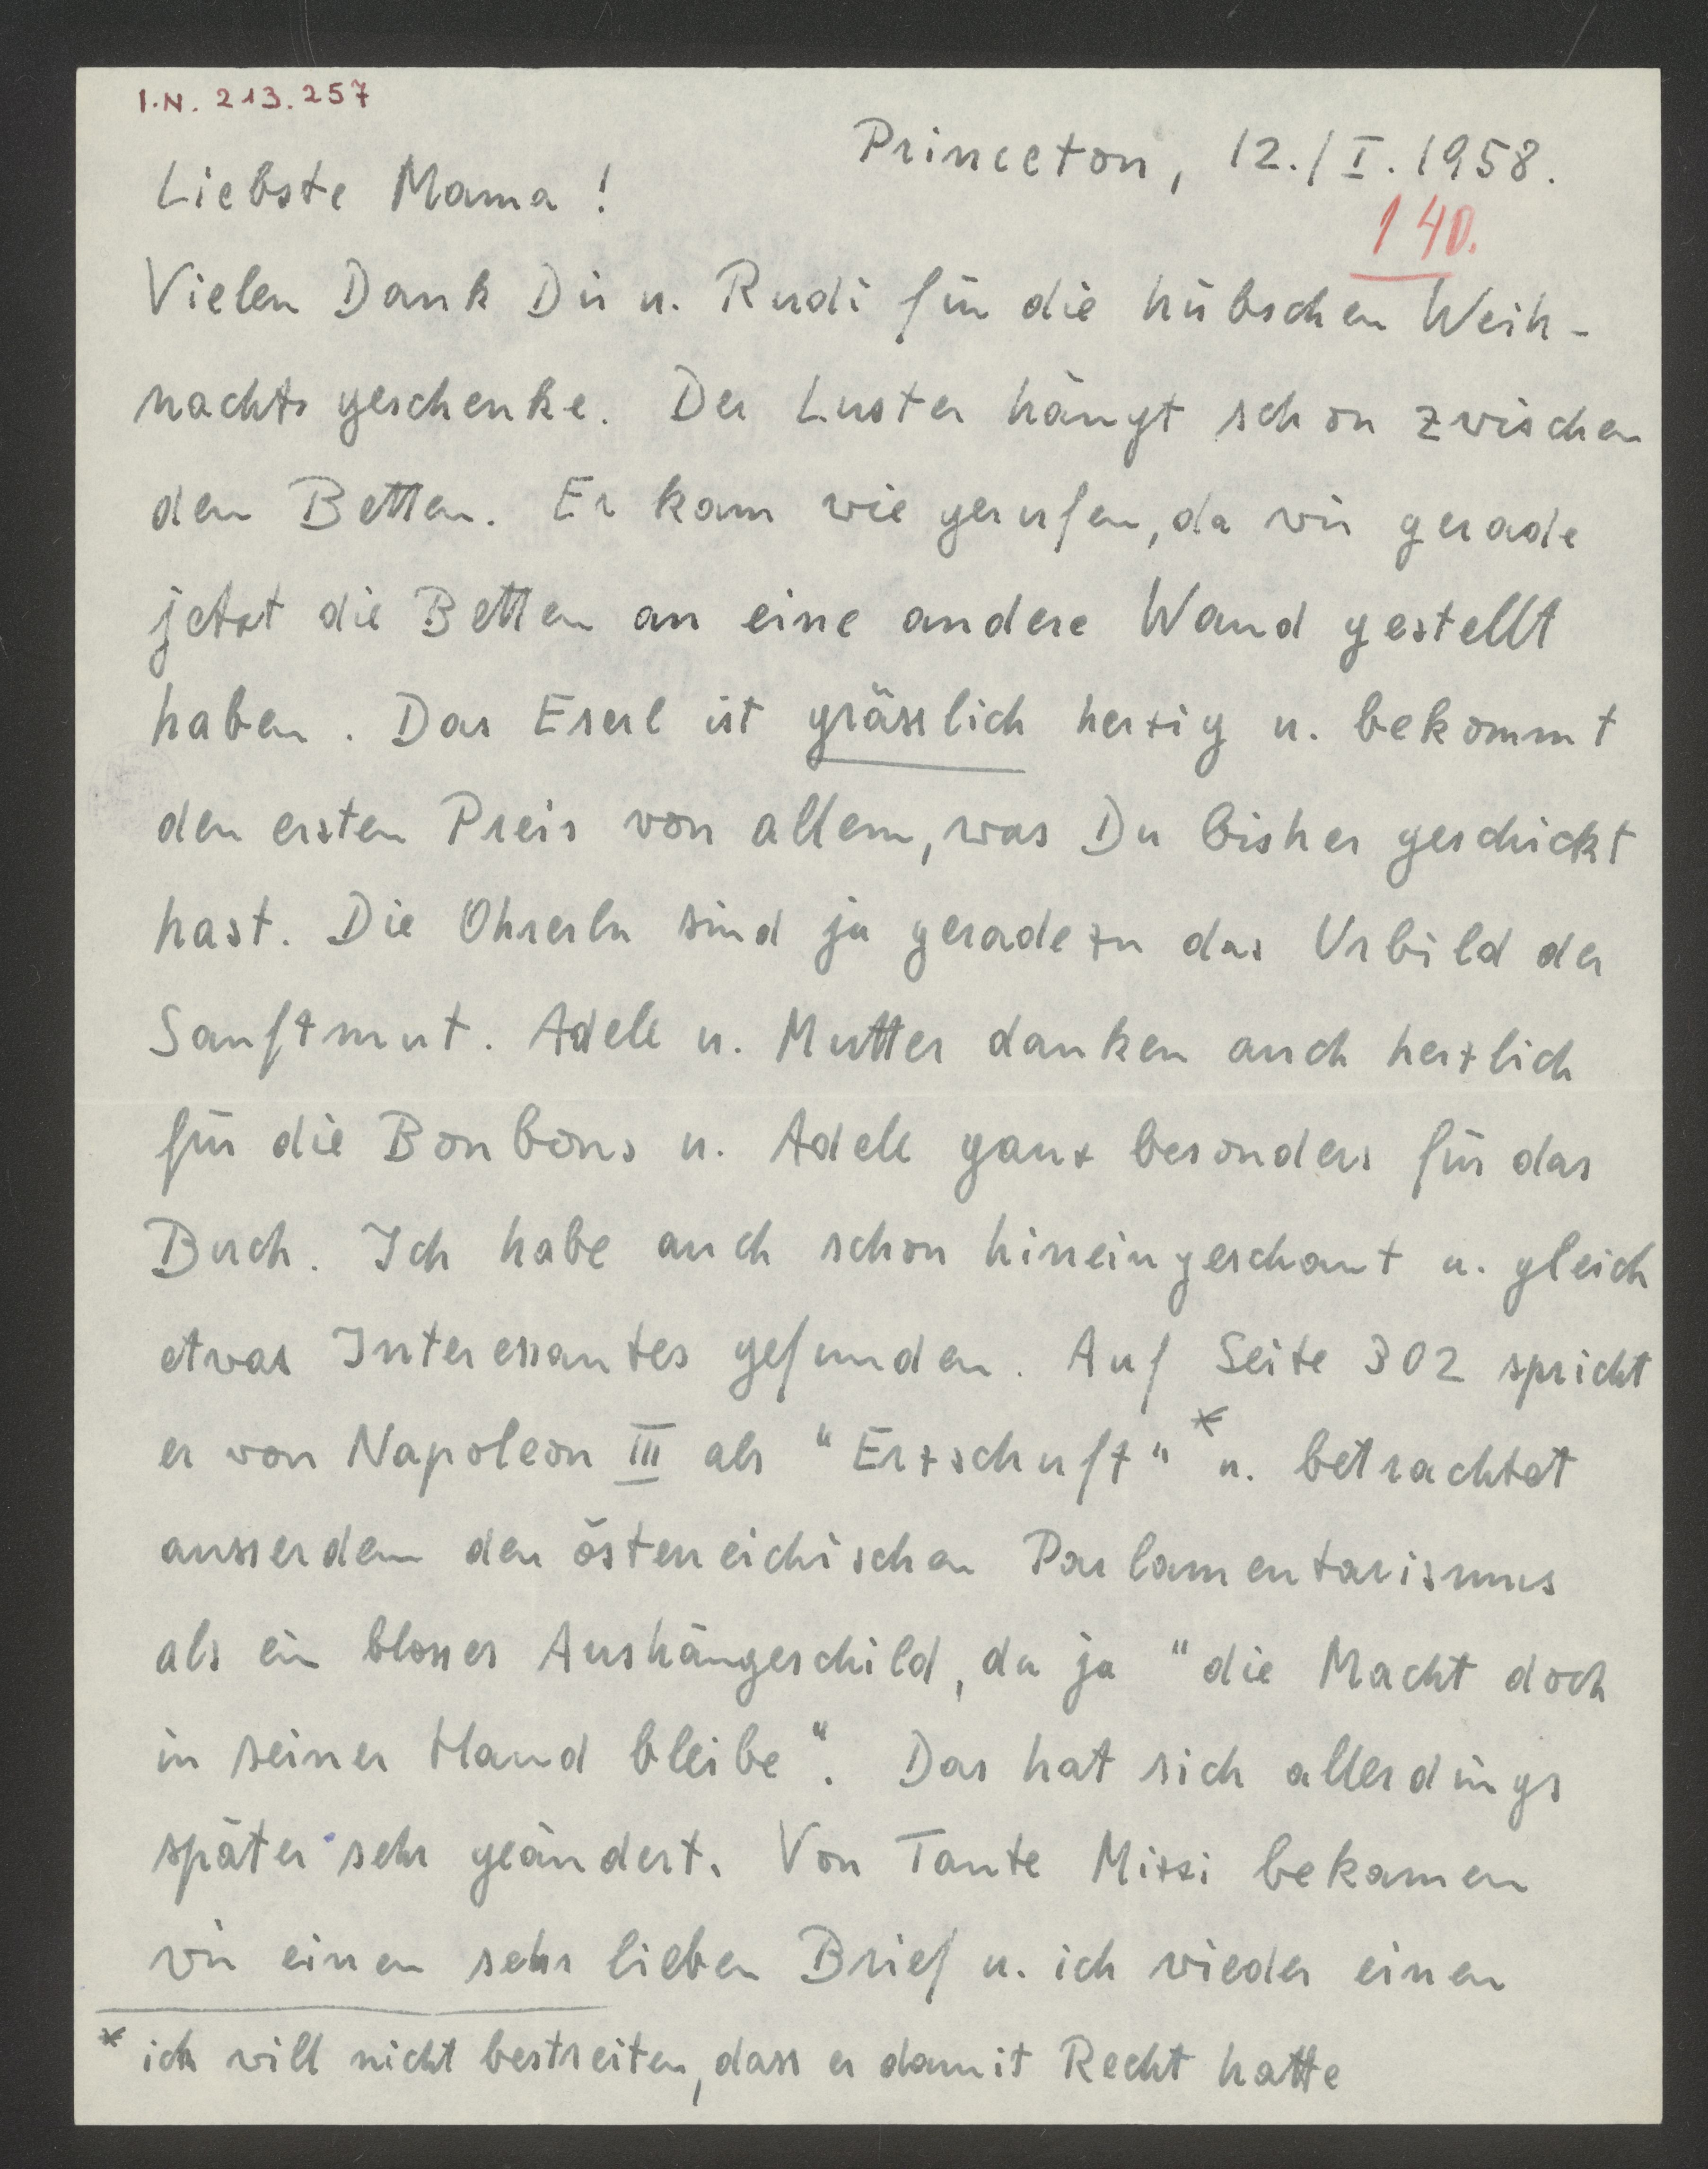 I.N. 213.257
Princeton, 12./I. 1958.
Liebste Mama !
140.
Vielen Dank Dir u. Rudi für die hübschen Weih-
nachtsgeschenke. Der Luster hängt schon zwischen
den Betten. Er kam wie gerufen, da wir gerade
jetzt die Betten an eine andere Wand gestellt
haben. Das Eserl ist grässlich herzig u. bekommt
den ersten Preis von allem, was Du bisher geschickt
hast. Die Ohrerln sind ja geradezu das Urbild der
Sanftmut. Adele u. Mutter danken auch herzlich
für die Bonbons u. Adele ganz besonders für das
Buch. Ich habe auch schon hineingeschaut u. gleich
etwas Interessantes gefunden. Auf Seite 302 spricht
er von Napoleon III als "Erzschuft"* u. betrachtet
ausserdem den österreichischen Parlamentarismus
als ein blosses Aushängeschild, da ja "die Macht doch
in seiner Hand bleibe". Das hat sich allerdings
später sehr geändert. Von Tante Mitzi bekamen
wir einen sehr lieben Brief u. ich wieder einen
* ich will nicht bestreiten, dass er damit Recht hatte